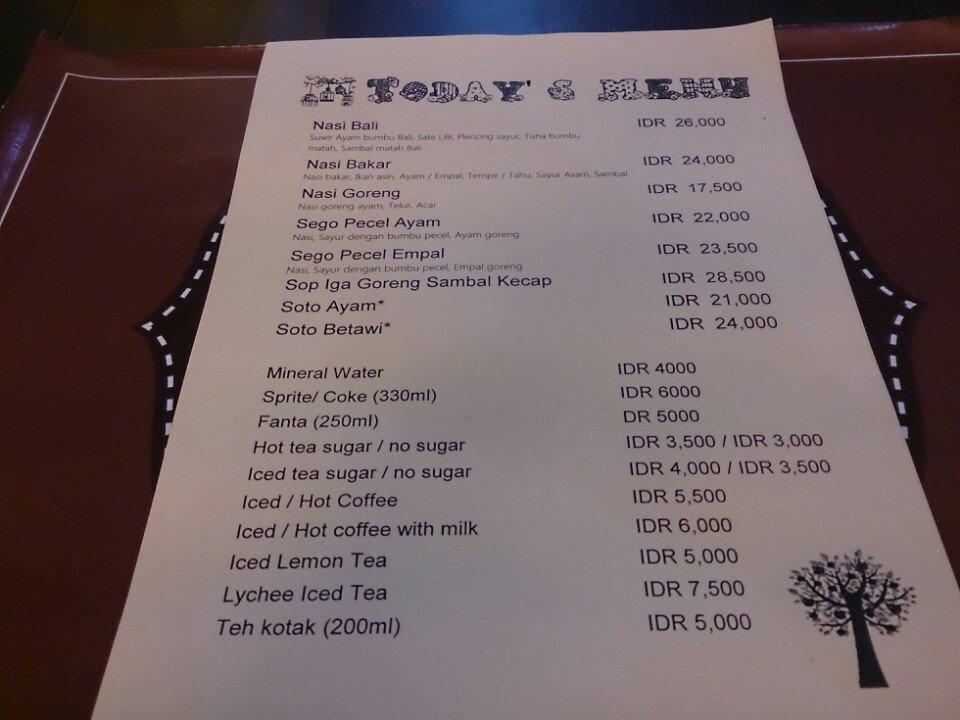 TODAY'S MENU
Nasi Bali IDR 26,000
Suwir Ayam bumbu Bali, Sate Lilit, Plencing sayur, Tuna bumbu
matah, Sambal matah Bali
Nasi Bakar IDR 24,000
Nasi bakar, Ikan asin, Ayam / Empal, Tempe / Tahu, Sayur Asam, Sambal
Nasi Goreng IDR 17,500
Nasi goreng ayam, Telur, Acar
Sego Pecel Ayam IDR 22,000
Nasi, Sayur dengan bumbu pecel, Ayam goreng
Sego Pecel Empal IDR 23,500
Nasi, Sayur dengan bumbu pecel, Empal goreng
Sop Iga Goreng Sambal Kecap IDR 28,500
Soto Ayam* IDR 21,000
Soto Betawi* IDR 24,000
Mineral Water IDR 4000
Sprite/ Coke (330ml) IDR 6000
Fanta (250ml) DR 5000
Hot tea sugar / no sugar IDR 3,500 / IDR 3,000
Iced tea sugar / no sugar IDR 4,000 / IDR 3,500
Iced / Hot Coffee IDR 5,500
Iced / Hot coffee with milk IDR 6,000
Iced Lemon Tea IDR 5,000
Lychee Iced Tea IDR 7,500
Teh kotak (200ml) IDR 5,000